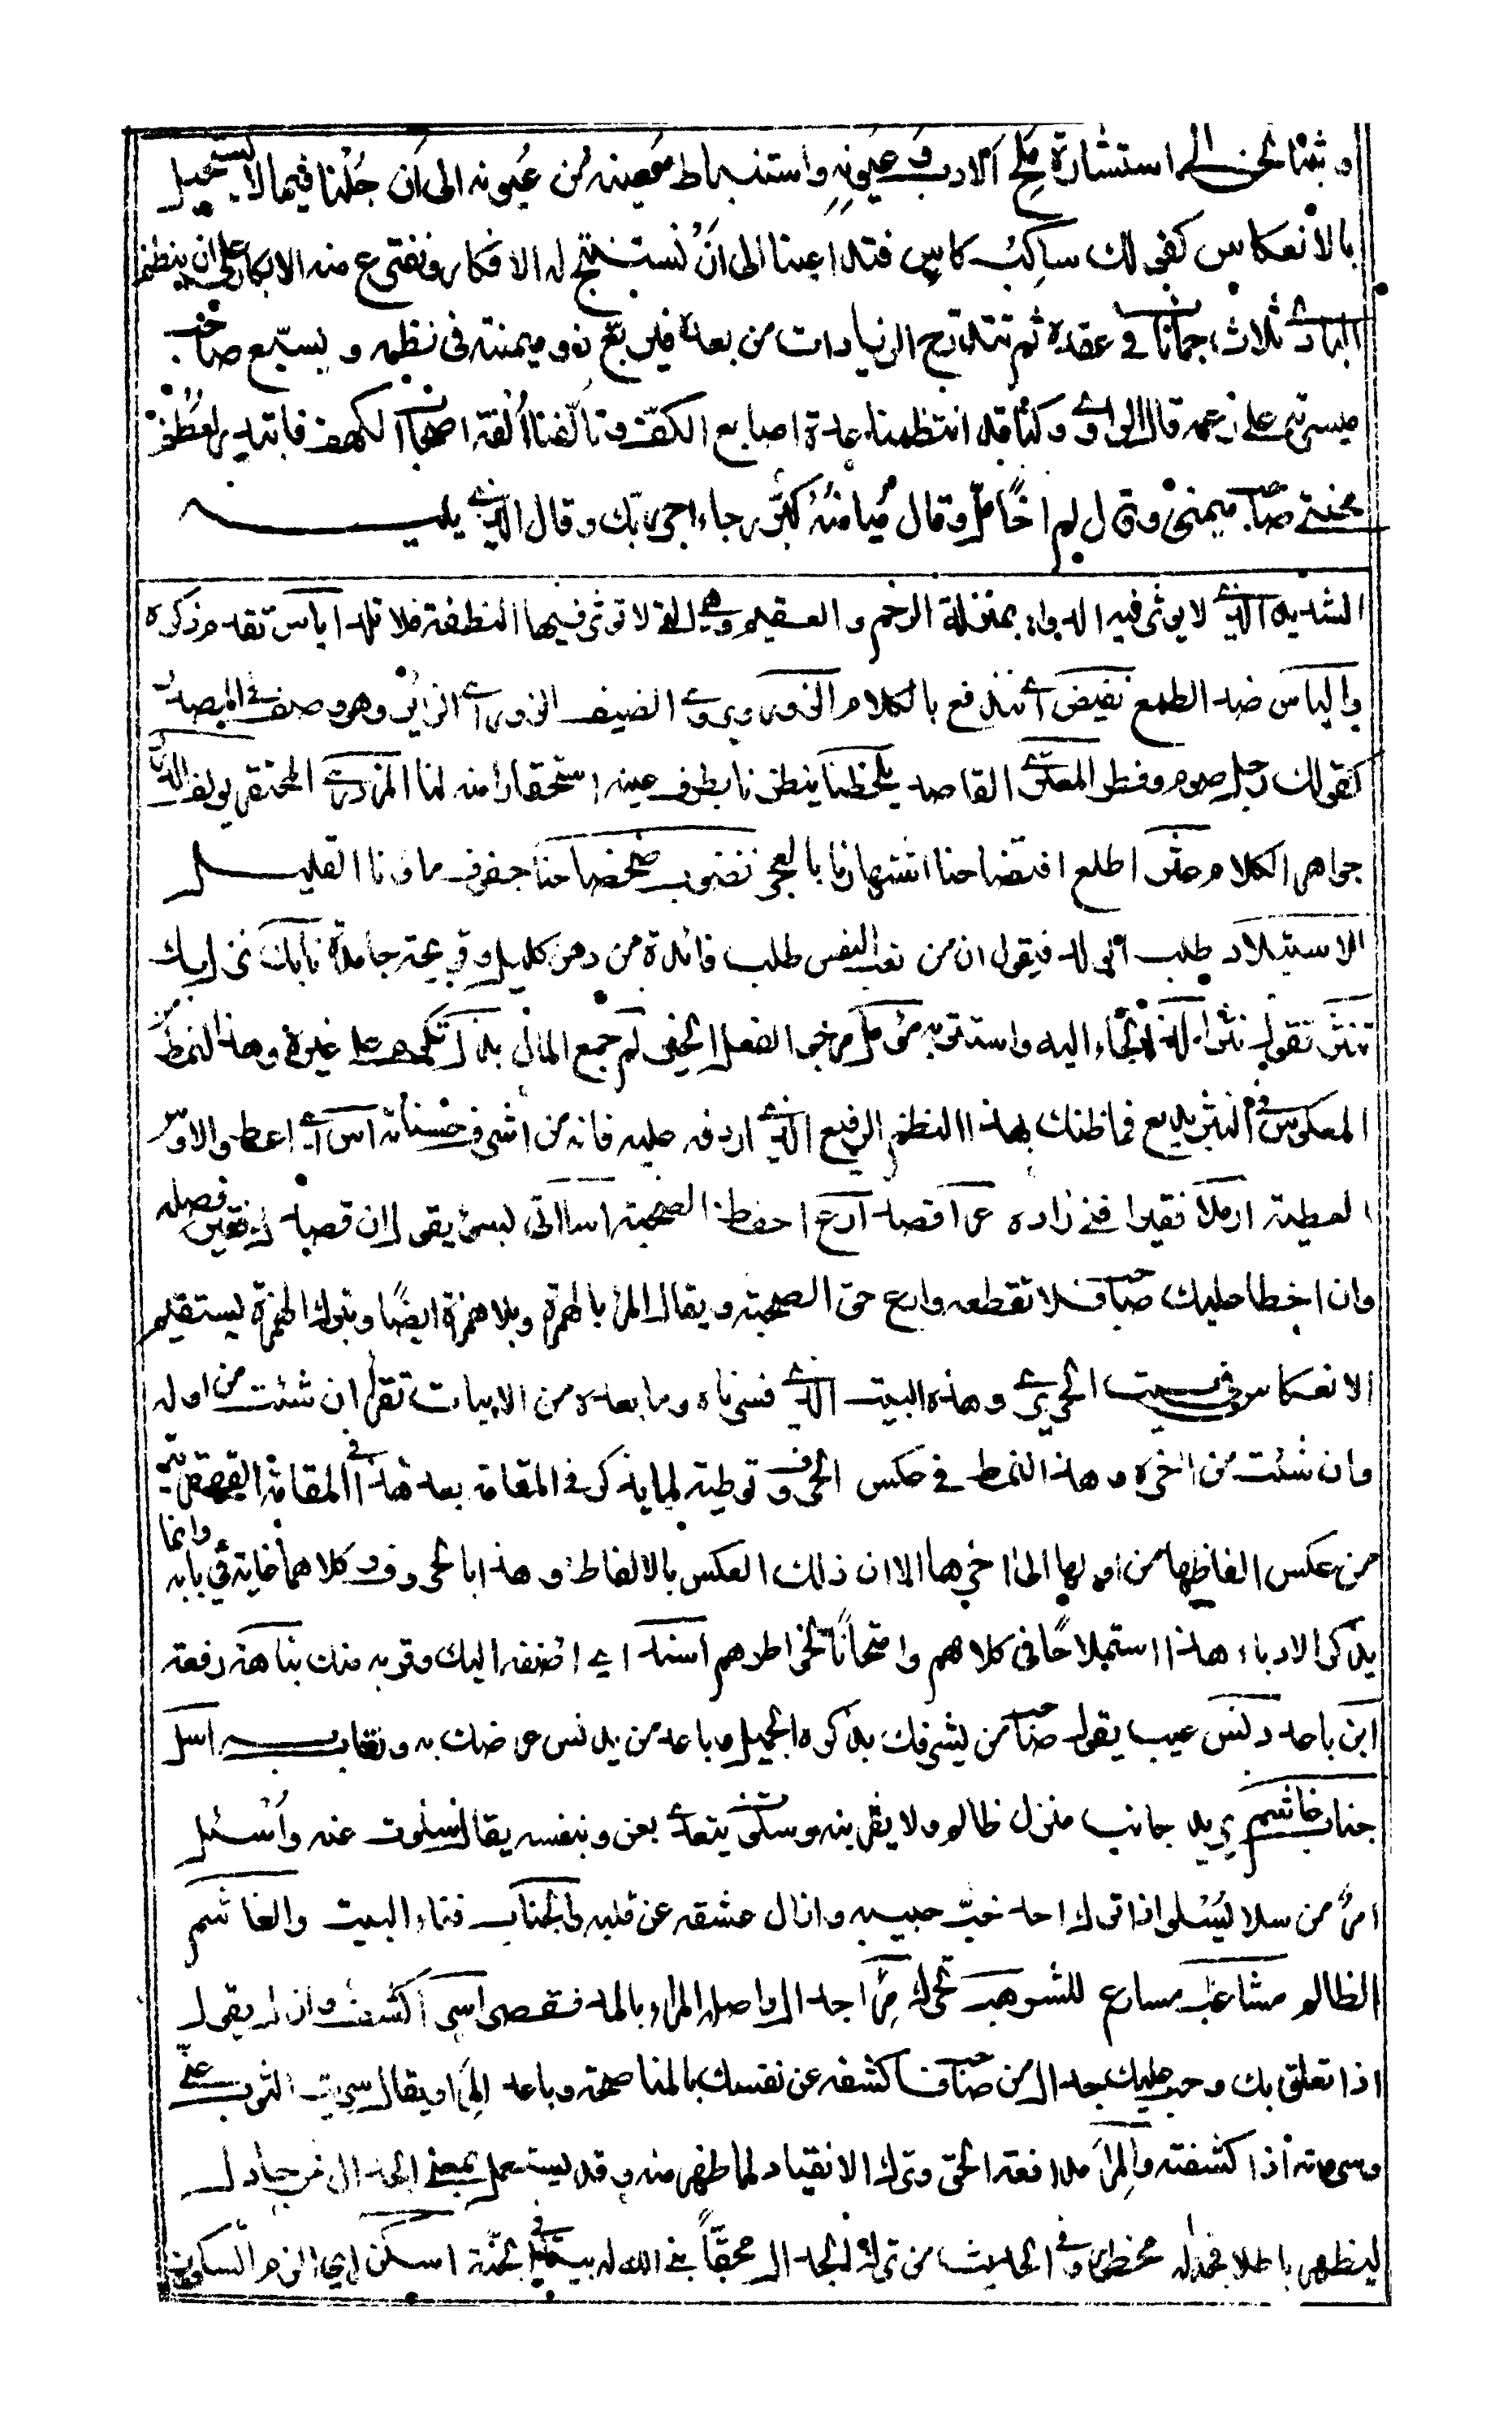 وبثنا نحن الى استشارة ملح الادب وعيونه واستنباط معينه من عيونه الى ان جلنا فيما لا يستحيل
بالانعكاس كقولك ساكب كاس فتداعينا الى ان نستنتج له الافكار ونفترع منه الابكار على ان ينظم
البادئ ثلاث جمانات في عقده ثم تتدرج الزيادات من بعده فيربع ذو ميمنته في نظمه ويسبع صاحب
ميسرته على زعمه قال الراوي وكنا قد انتظمنا عدة اصابع الكف وتالفنا الفة اصحاب الكهف فابتدر لعظم
محنتي صاحب ميمنتي وقال لم اخا مل وقال ميامنه كبر رجاء اجر ربك وقال الذي يليه
الشديد الذي لا يوثر فيه الدواء بمنزلة الرحم والعقيم وهي التي لا توثر فيها النطفة فلا تلد اياس تقدم ذكره
والياس ضد الطمع نفيض اي نندفع بالكلام الزور ويروى الضيف الزور اي الزائر وهو وصف بالمصدر
كقولك رجل صوم وفطر المعتري القاصد يلحظنا ينظرنا بطرف عينه استحقارا منه لنا المزدري المحتقر يولف الدرر
جواهر الكلام عثر اطلع افتضاحنا اشتهارنا بالعجز نضوب ضحضاحنا جفوف ماءنا القليل
الاستيلاد طلب الولد فيقول ان من تعب النفس طلب فائدة من ذهن كليل وقريحة جامدة
تنثر تقول نثرا لذ التجاء اليه واستتر به مومل مرجو الفعل الخير لم جمع المال بذل تكرم على غيره وهذا النمط
المعكوس في النثر بديع فما ظنك بهذا النظم الرفيع الذي اردفه عليه فانه من اشرف حسناته اس اي اعط والاوس
العطية ارملا فقيرا فني زاده عرا قصد ارع احفظ الصحبة اسا اتى بسوء يقول ان قصدك فقير فصله
وان اخطا عليك صاحب فلا تقطعه وارع حق الصحبة ويقال المرء بالهمزة وبلا همزة ايضا وبترك الهمزة يستقيم
الانعكاس في بيت الحريري وهذا البيت الذي فسرناه وما بعده من الابيات تقرا ان شئت من اوله
وان شئت من اخره وهذا النمط في عكس الحروف توطية لما يذكر في المقامة بعد هذا في المقامة القهقرية
من عكس الفاظها من اولها الى اخرها الا ان ذلك العكس بالالفاظ وهذا بالحروف وكلاهما غاية في بابه وانما
يذكر الادباء هذا استملاحا في كلامهم وامتحانا لخواطرهم اسند اي اضفه اليك وقربه منك نباهة رفعة
ابن باعد دنس عيب يقول صاحب من يشرفك بذكره الجميل وباعد من يدنس عرضك به وتعاب اسل
جناب غاشم يريد جانب منزل ظالم ولا تقربنه وسلا يتعدى بعن وبنفسه يقال سلوت عنه واسل
امر من سلا يسلو اذا ترك احد حب حبيبه وازال عشقه عن قلبه والجناب فناء البيت والغاشم
الظالم مشاغب مسارع للشر هب تحرك مرا جدال واصله المراء بالمد فقصر اسر اكشف وازل يقول
اذا تعلق بك وحب عليك جدال من صاحب فاكشفه عن نفسك بالمناصحة وباعد المراء ويقال سريت الثوب عني
وسروته اذا كشفته والمراء مدافعة الحق وترك الانقياد لما ظهر منه وقد يستعمل بمعنى الجدال فمن جادل
ليظهر باطلا فجداله محظور وفي الحديث من ترك الجدال محقا بنى الله له بيتا في الجنة اسكن اي الزم السكون